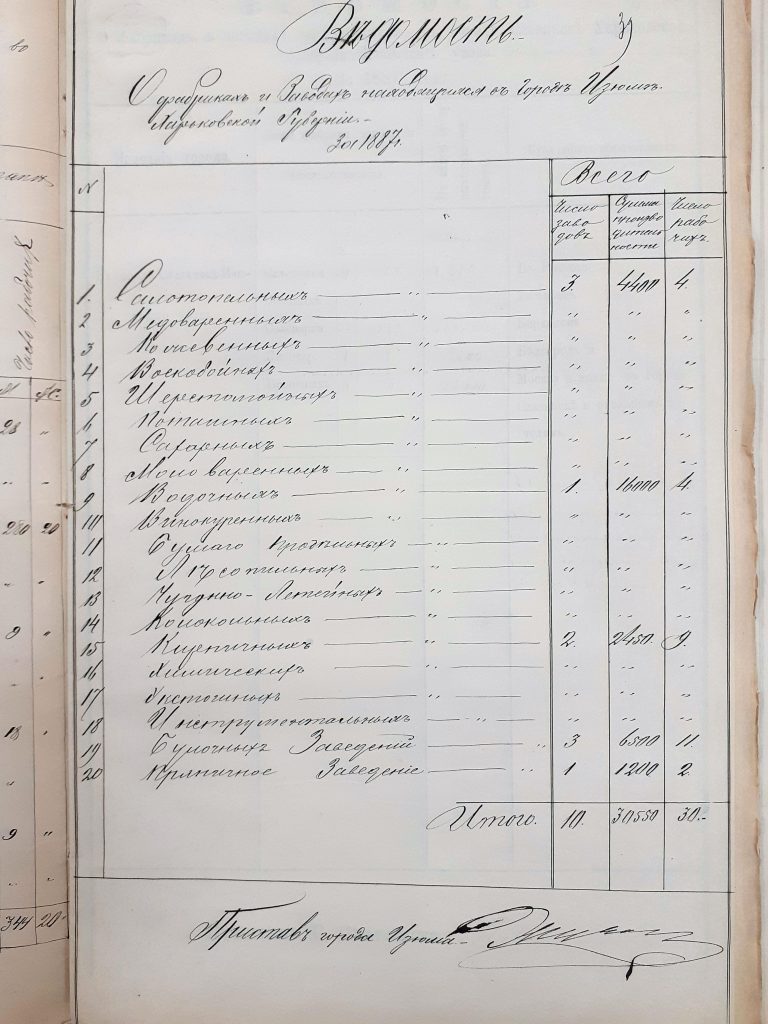 во
Число рабочих
М
Ж.
28 "
" "
280 20
" "
9 "
18 "
"
9 "
" "
344 20
Вѣдомость.
О фабрикахъ и Заводахъ находящихся въ Городѣ Изюмѣ.
Харьковской Губерніи.
За 1887 г.
N
Всего
Число заводовъ
Сумма производительности
Число рабочихъ.
1. Салотопельныхъ — " — 3. 4400 4.
2 Медоваренныхъ — " — " " "
3 Кожевенныхъ — " — " " "
4 Воскобойныхъ — " — " " "
5 Шерстомойныхъ — " — " " "
6 Поташныхъ — " — " " "
7 Сахарныхъ — " — " " "
8 Мыловаренныхъ — " — " " "
9 Водочныхъ — " — 1. 16000 4.
10 Винокуренныхъ — " — " " "
11 Бумаго прядильныхъ — " — " " "
12 Лѣсопильныхъ — " — " " "
13 Чугунно-Литейныхъ — " — " " "
14 Колокольныхъ — " — " " "
15 Кирпичныхъ — " — 2. 2450. 9.
16 Химическихъ — " — " " "
17 — " — " " "
18 Инструментальныхъ — " — " " "
19 Булочныхъ Заведеній — " 3 6500 11.
20 Пряничное Заведеніе — " 1 1200 2.
Итого. 10. 30550 30.-
Приставъ города Изюма